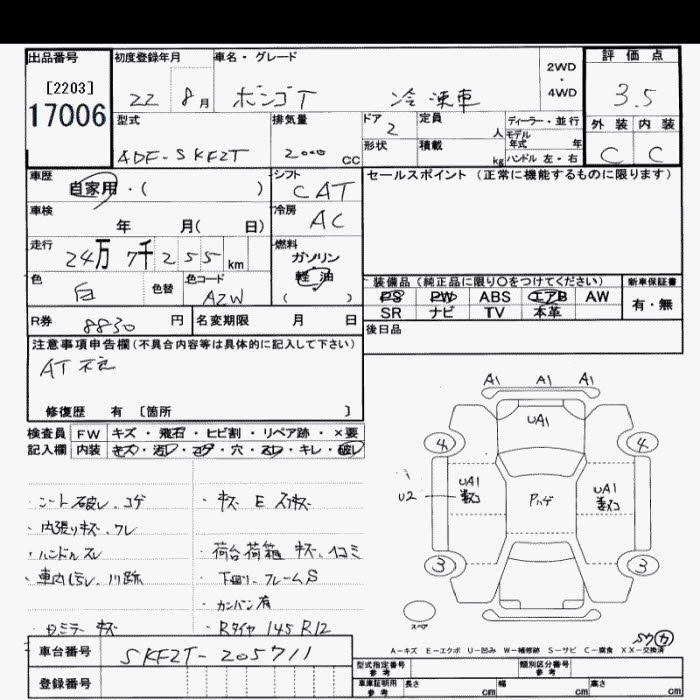 出品番号 初度登録年月 車名・グレード 2WD・4WD 評価点
[2203] 22 8月 ボンゴT 冷凍車 3.5
17006
型式 排気量 ドア 2 定員 人 ディーラー・並行 外装 内装
モデル年式 年
ADF-SKF2T 2000 cc 形状 積載 kg ハンドル 左・右 C C
車歴 シフト セールスポイント (正常に機能するものに限ります)
自家用・( ) CAT
車検 年 月( 日) 冷房 AC
走行 24万7千255km 燃料 ガソリン
軽油
( )
色 白 色替 色コード A2W
装備品 (純正品に限り○をつけてください) 新車保証書
PS PW ABS エアB AW 有・無
SR ナビ TV 本革
R券 8830円 名変期限 月 日 後日品
注意事項申告欄(不具合内容等は具体的に記入して下さい)
AT不良
修復歴 有 [箇所 ]
検査員 FW キズ・飛石・ヒビ割・リペア跡・×要
記入欄 内装 キズ・汚レ・コゲ・穴・スレ・キレ・破レ
・シート破レ、コゲ
・内張りキズ、ワレ
・ハンドルスレ
・車内汚レ、
キズ
・荷台荷箱 キズ、
・下回り、フレームS
・カンバン有
・Rタイヤ 145R12
A1 A1 A1
UA1
4 4
U2 UA1 Pハゲ UA1
3 3
スペア
A-キズ E-エクボ U-凹み W-補修跡 S-サビ C-腐食 XX-交換済
車台番号 SKF2T-205711
登録番号
型式指定番号 参考 類別区分番号 参考
車庫証明用 参考 長さ cm 幅 cm 高さ cm